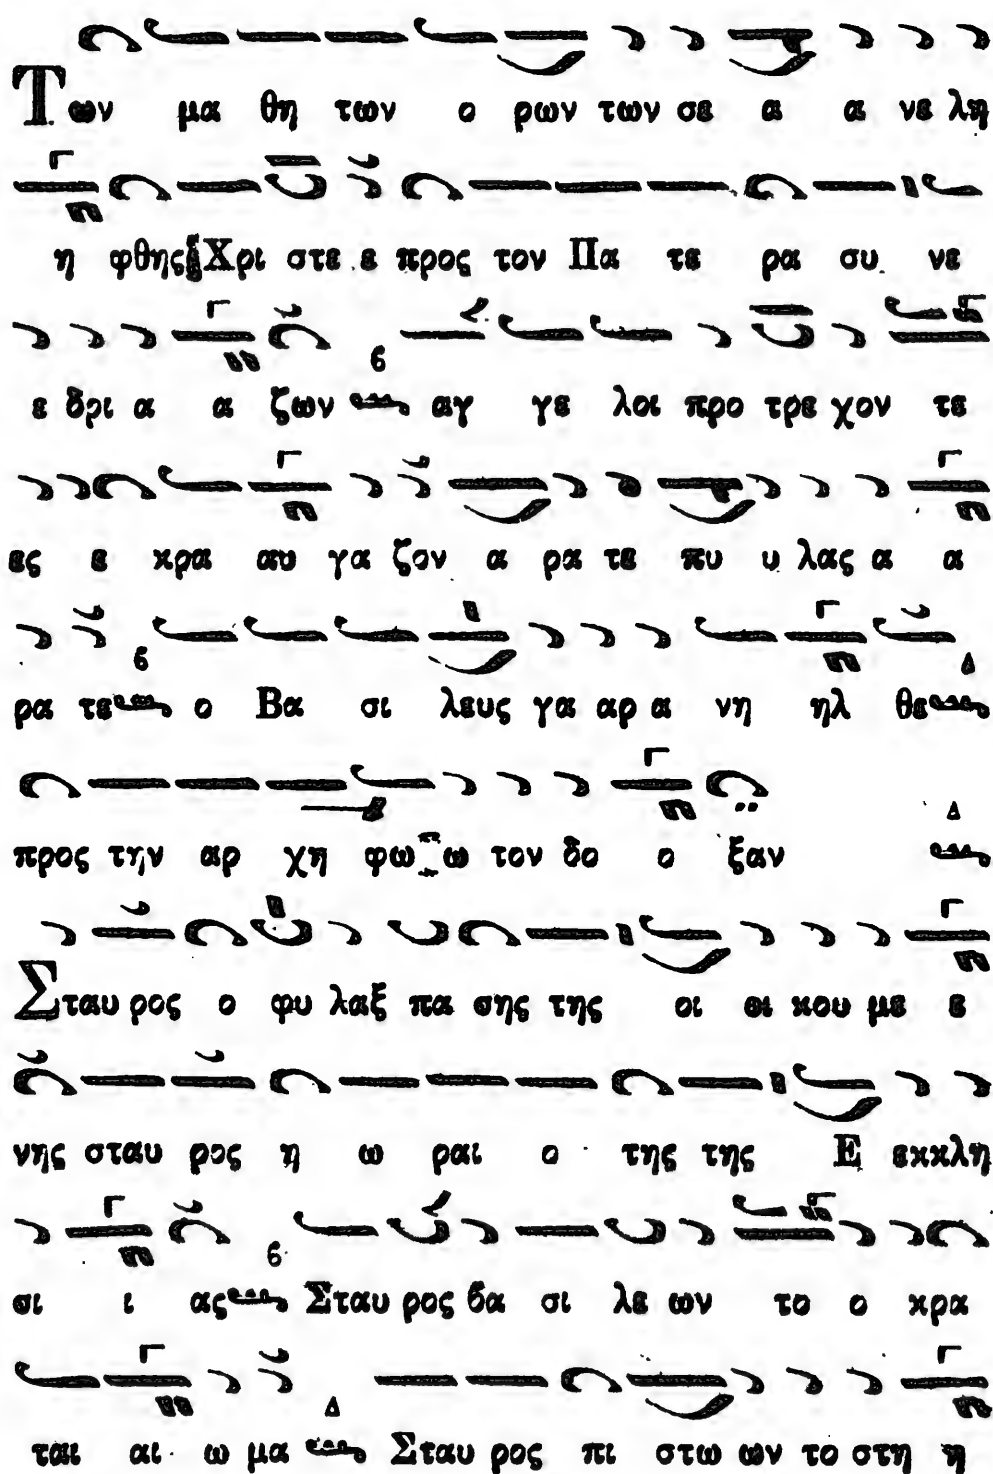 Των μα θη των ο ρων των σε α α νε λη
η φθης Χρι στε ε προς τον Πα τε ρα συ νε
ε δρι α α ζων αγ γε λοι προ τρε χον τε
ες ε κρα αυ γα ζον α ρα τε πυ υ λας α α
ρα τε ο Βα σι λευς γα αρ α νη ηλ θε
προς την αρ χη φω ω τον δο ο ξαν
Σταυ ρος ο φυ λαξ πα σης της οι οι κου με ε
νης σταυ ρος η ω ραι ο της της Ε εκκλη
σι ι ας Σταυ ρος βα σι λε ων το ο κρα
ται αι ω μα Σταυ ρος πι στω ων το στη η